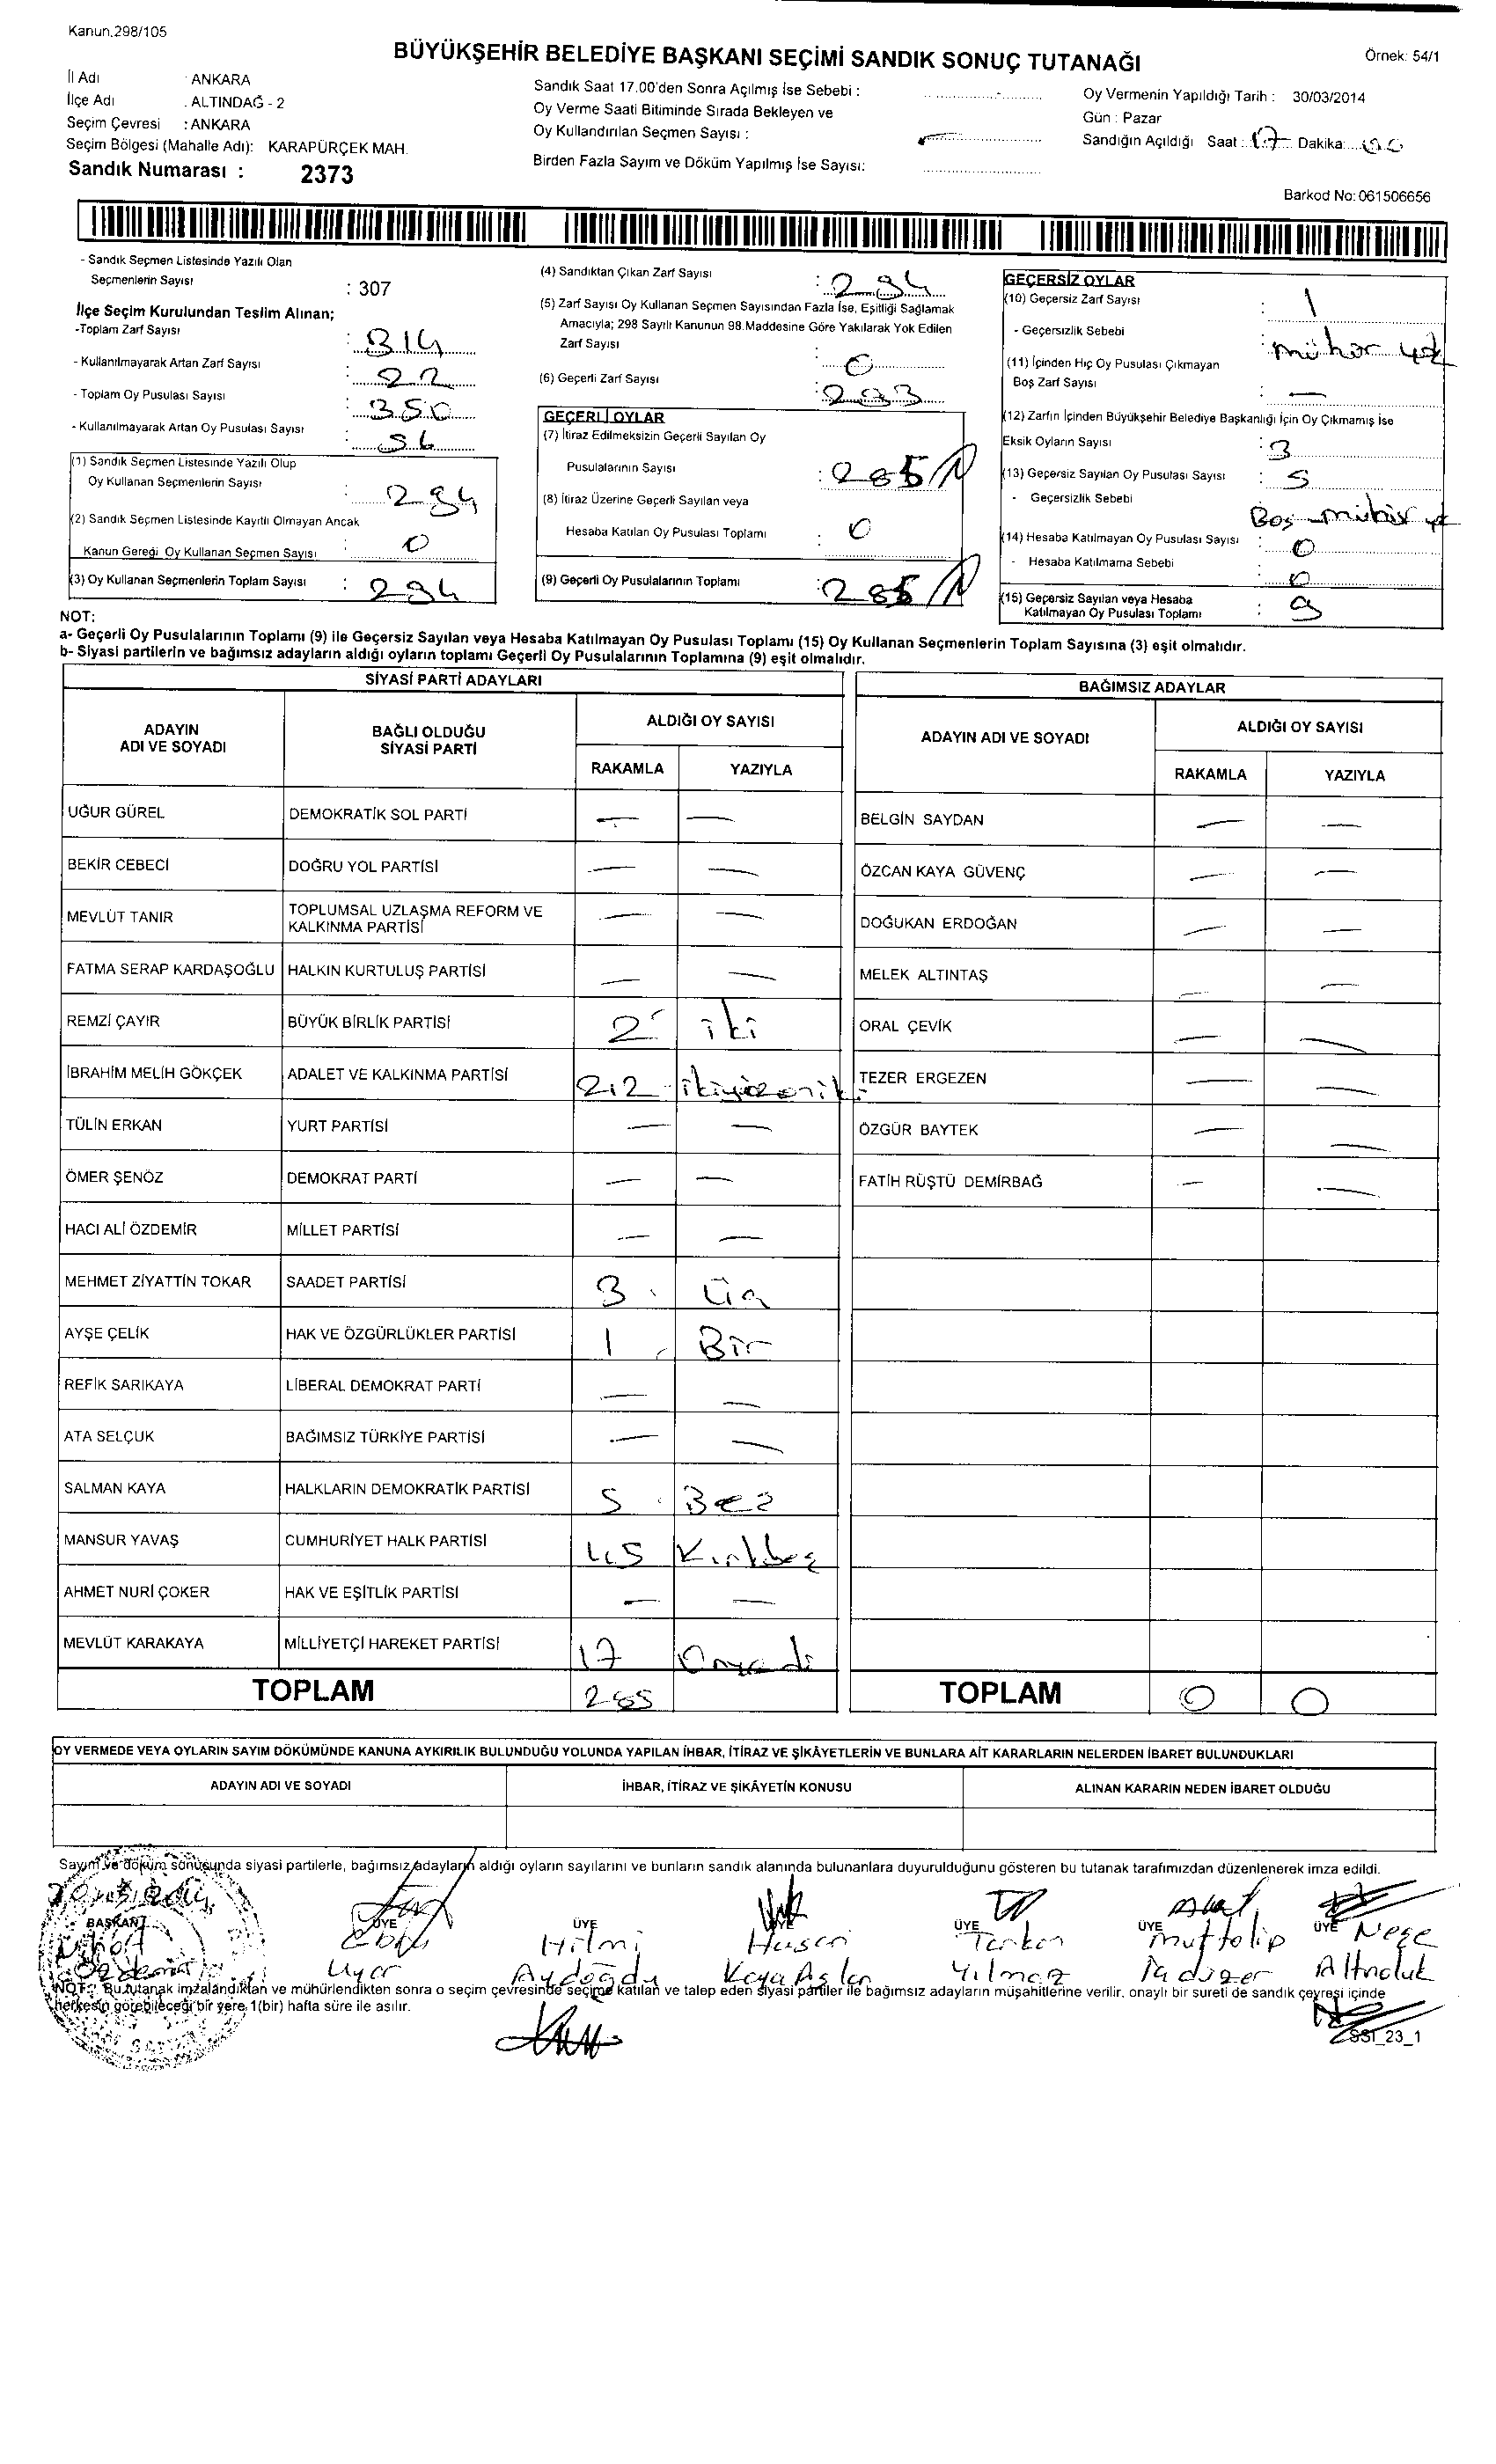 Kanun.298/105
BÜYÜKŞEHİR BELEDİYE BAŞKANI SEÇİMİ SANDIK SONUÇ TUTANAĞI
Örnek: 54/1
İl Adı : ANKARA
İlçe Adı : ALTINDAĞ - 2
Seçim Çevresi : ANKARA
Seçim Bölgesi (Mahalle Adı): KARAPÜRÇEK MAH.
Sandık Numarası : 2373
Sandık Saat 17.00'den Sonra Açılmış İse Sebebi :
Oy Verme Saati Bitiminde Sırada Bekleyen ve
Oy Kullandırılan Seçmen Sayısı :
Birden Fazla Sayım ve Döküm Yapılmış İse Sayısı:
Oy Vermenin Yapıldığı Tarih : 30/03/2014
Gün : Pazar
Sandığın Açıldığı Saat : 17 Dakika: 00
Barkod No: 061506656
- Sandık Seçmen Listesinde Yazılı Olan
Seçmenlerin Sayısı : 307
İlçe Seçim Kurulundan Teslim Alınan;
-Toplam Zarf Sayısı : 314
- Kullanılmayarak Artan Zarf Sayısı : 22
- Toplam Oy Pusulası Sayısı : 350
- Kullanılmayarak Artan Oy Pusulası Sayısı : 56
(1) Sandık Seçmen Listesinde Yazılı Olup
Oy Kullanan Seçmenlerin Sayısı : 294
(2) Sandık Seçmen Listesinde Kayıtlı Olmayan Ancak
Kanun Gereği Oy Kullanan Seçmen Sayısı : 0
(3) Oy Kullanan Seçmenlerin Toplam Sayısı : 294
(4) Sandıktan Çıkan Zarf Sayısı : 294
(5) Zarf Sayısı Oy Kullanan Seçmen Sayısından Fazla İse, Eşitliği Sağlamak
Amacıyla; 298 Sayılı Kanunun 98.Maddesine Göre Yakılarak Yok Edilen
Zarf Sayısı : 0
(6) Geçerli Zarf Sayısı : 293
GEÇERLİ OYLAR
(7) İtiraz Edilmeksizin Geçerli Sayılan Oy
Pusulalarının Sayısı : 285
(8) İtiraz Üzerine Geçerli Sayılan veya
Hesaba Katılan Oy Pusulası Toplamı : 0
(9) Geçerli Oy Pusulalarının Toplamı : 285
GEÇERSİZ OYLAR
(10) Geçersiz Zarf Sayısı : 1
- Geçersizlik Sebebi : mühür yok
(11) İçinden Hiç Oy Pusulası Çıkmayan
Boş Zarf Sayısı : —
(12) Zarfın İçinden Büyükşehir Belediye Başkanlığı İçin Oy Çıkmamış İse
Eksik Oyların Sayısı : 3
(13) Geçersiz Sayılan Oy Pusulası Sayısı : 5
- Geçersizlik Sebebi Boş
(14) Hesaba Katılmayan Oy Pusulası Sayısı : 0
- Hesaba Katılmama Sebebi : 0
(15) Geçersiz Sayılan veya Hesaba
Katılmayan Oy Pusulası Toplamı : 9
NOT:
a- Geçerli Oy Pusulalarının Toplamı (9) ile Geçersiz Sayılan veya Hesaba Katılmayan Oy Pusulası Toplamı (15) Oy Kullanan Seçmenlerin Toplam Sayısına (3) eşit olmalıdır.
b- Siyasi partilerin ve bağımsız adayların aldığı oyların toplamı Geçerli Oy Pusulalarının Toplamına (9) eşit olmalıdır.
SİYASİ PARTİ ADAYLARI
ADAYIN ADI VE SOYADI BAĞLI OLDUĞU SİYASİ PARTİ ALDIĞI OY SAYISI
RAKAMLA YAZIYLA
UĞUR GÜREL DEMOKRATİK SOL PARTİ — —
BEKİR CEBECİ DOĞRU YOL PARTİSİ — —
MEVLÜT TANIR TOPLUMSAL UZLAŞMA REFORM VE KALKINMA PARTİSİ — —
FATMA SERAP KARDAŞOĞLU HALKIN KURTULUŞ PARTİSİ — —
REMZİ ÇAYIR BÜYÜK BİRLİK PARTİSİ 2 iki
İBRAHİM MELİH GÖKÇEK ADALET VE KALKINMA PARTİSİ 212 ikiyüzoniki
TÜLİN ERKAN YURT PARTİSİ — —
ÖMER ŞENÖZ DEMOKRAT PARTİ — —
HACI ALİ ÖZDEMİR MİLLET PARTİSİ — —
MEHMET ZİYATTİN TOKAR SAADET PARTİSİ 3 Üç
AYŞE ÇELİK HAK VE ÖZGÜRLÜKLER PARTİSİ 1 Bir
REFİK SARIKAYA LİBERAL DEMOKRAT PARTİ — —
ATA SELÇUK BAĞIMSIZ TÜRKİYE PARTİSİ — —
SALMAN KAYA HALKLARIN DEMOKRATİK PARTİSİ 5 Beş
MANSUR YAVAŞ CUMHURİYET HALK PARTİSİ 45 Kırkbeş
AHMET NURİ ÇOKER HAK VE EŞİTLİK PARTİSİ — —
MEVLÜT KARAKAYA MİLLİYETÇİ HAREKET PARTİSİ 17 Onyedi
TOPLAM 285
BAĞIMSIZ ADAYLAR
ADAYIN ADI VE SOYADI ALDIĞI OY SAYISI
RAKAMLA YAZIYLA
BELGİN SAYDAN — —
ÖZCAN KAYA GÜVENÇ — —
DOĞUKAN ERDOĞAN — —
MELEK ALTINTAŞ — —
ORAL ÇEVİK — —
TEZER ERGEZEN — —
ÖZGÜR BAYTEK — —
FATİH RÜŞTÜ DEMİRBAĞ — —
TOPLAM 0 0
OY VERMEDE VEYA OYLARIN SAYIM DÖKÜMÜNDE KANUNA AYKIRILIK BULUNDUĞU YOLUNDA YAPILAN İHBAR, İTİRAZ VE ŞİKÂYETLERİN VE BUNLARA AİT KARARLARIN NELERDEN İBARET BULUNDUKLARI
ADAYIN ADI VE SOYADI İHBAR, İTİRAZ VE ŞİKÂYETİN KONUSU ALINAN KARARIN NEDEN İBARET OLDUĞU
Sayım ve döküm sonucunda siyasi partilerle, bağımsız adayların aldığı oyların sayılarını ve bunların sandık alanında bulunanlara duyurulduğunu gösteren bu tutanak tarafımızdan düzenlenerek imza edildi.
BAŞKAN ÜYE ÜYE ÜYE ÜYE ÜYE ÜYE
Hilmi Hasan Muttalip Neşe
Özdemir Uyar Aydoğdu Kaya Aslan Yılmaz Altnoluk
NOT: Bu tutanak imzalandıktan ve mühürlendikten sonra o seçim çevresinde seçime katılan ve talep eden siyasi partiler ile bağımsız adayların müşahitlerine verilir. onaylı bir sureti de sandık çevresi içinde
herkesin görebileceği bir yere 1(bir) hafta süre ile asılır.
SSI_23_1